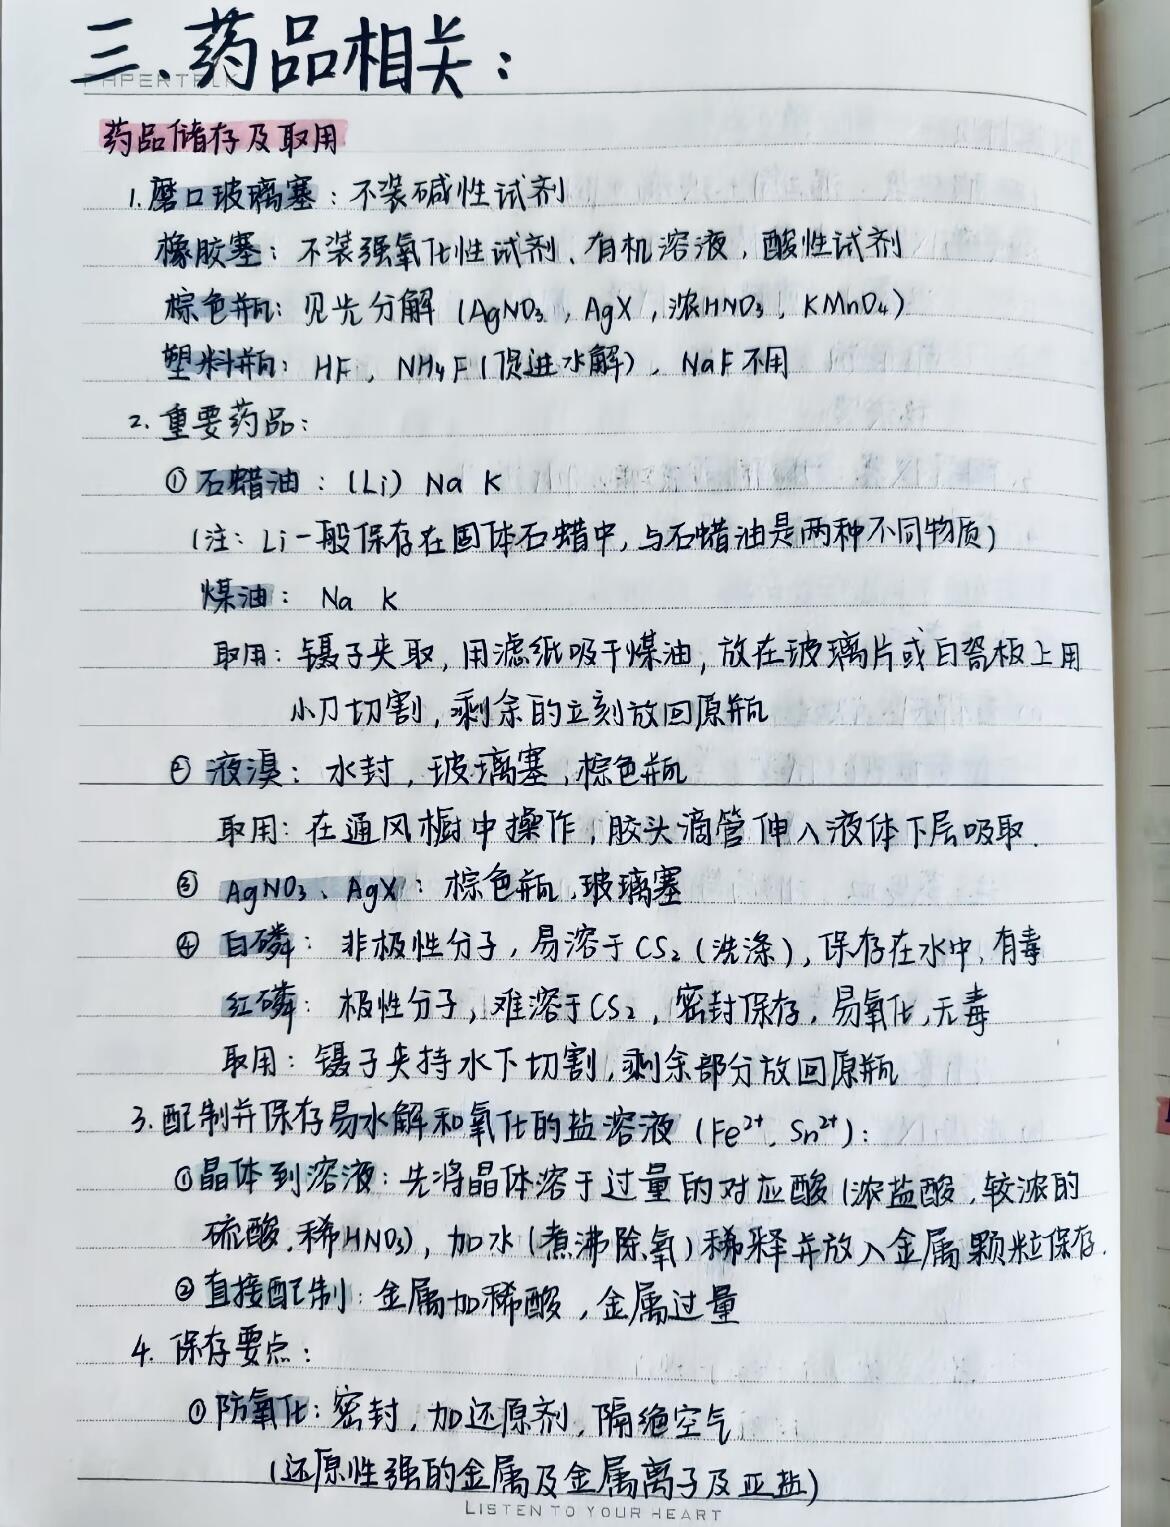 三、药品相关：
PAPERTALK
药品储存及取用
1.磨口玻璃塞：不装碱性试剂
橡胶塞：不装强氧化性试剂、有机溶液，酸性试剂
棕色瓶：见光分解（AgNO₃，AgX，浓HNO₃，KMnO₄）
塑料瓶：HF，NH₄F（促进水解），NaF不用
2.重要药品：
①石蜡油：（Li）Na K
（注：Li一般保存在固体石蜡中，与石蜡油是两种不同物质）
煤油：Na K
取用：镊子夹取，用滤纸吸干煤油，放在玻璃片或白瓷板上用
小刀切割，剩余的立刻放回原瓶
②液溴：水封，玻璃塞，棕色瓶
取用：在通风橱中操作，胶头滴管伸入液体下层吸取.
③AgNO₃、AgX：棕色瓶，玻璃塞
④白磷：非极性分子，易溶于CS₂（洗涤），保存在水中，有毒
红磷：极性分子，难溶于CS₂，密封保存，易氧化，无毒
取用：镊子夹持水下切割，剩余部分放回原瓶
3.配制并保存易水解和氧化的盐溶液（Fe²⁺、Sn²⁺）：
①晶体到溶液：先将晶体溶于过量的对应酸（浓盐酸，较浓的
硫酸，稀HNO₃），加水（煮沸除氧）稀释并放入金属颗粒保存.
②直接配制：金属加稀酸，金属过量
4.保存要点：
①防氧化：密封，加还原剂，隔绝空气
（还原性强的金属及金属离子及亚盐）
LISTEN TO YOUR HEART